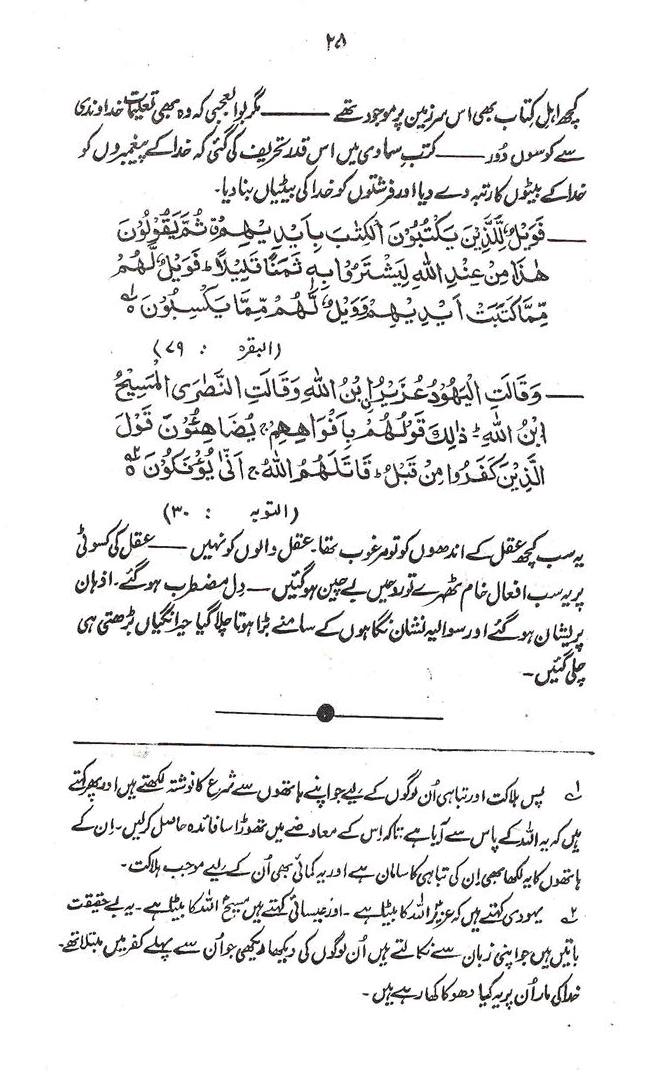 ۲۸
کچھ اہلِ کتاب بھی اس سرزمین پر موجود تھے ——— مگر بوالعجبی کہ وہ بھی تعلیماتِ خداوندی
سے کوسوں دُور —— کتبِ سماوی میں اس قدر تحریف کی گئی کہ خدا کے پیغمبروں کو
خدا کے بیٹوں کا رتبہ دے دیا اور فرشتوں کو خدا کی بیٹیاں بنا دیا۔
— فَوَيْلٌ لِّلَّذِيْنَ يَكْتُبُوْنَ الْكِتٰبَ بِاَيْدِيْهِمْ ۃ ثُمَّ يَقُوْلُوْنَ
هٰذَا مِنْ عِنْدِ اللهِ لِيَشْتَرُوْا بِهٖ ثَمَنًا قَلِيْلًا ؕ فَوَيْلٌ لَّهُمْ
مِّمَّا كَتَبَتْ اَيْدِيْهِمْ وَوَيْلٌ لَّهُمْ مِّمَّا يَكْسِبُوْنَ ۵ ؎۱
(البقرہ : ۷۹)
— وَقَالَتِ الْيَهُوْدُ عُزَيْرُ اِ۟بْنُ اللهِ وَقَالَتِ النَّصٰرَى الْمَسِيْحُ
ابْنُ اللهِ ؕ ذٰلِكَ قَوْلُهُمْ بِاَفْوَاهِهِمْ ۚ يُضَاهِـُٔوْنَ قَوْلَ
الَّذِيْنَ كَفَرُوْا مِنْ قَبْلُ ؕ قَاتَلَهُمُ اللهُ ۚ اَنّٰى يُؤْفَكُوْنَ ۵ ؎۲
(التوبہ : ۳۰)
یہ سب کچھ عقل کے اندھوں کو تو مرغوب تھا۔ عقل والوں کو نہیں —— عقل کی کسوٹی
پر یہ سب افعال خام ٹھہرے تو روحیں بے چین ہو گئیں — دل مضطرب ہو گئے۔ اذہان
پریشان ہو گئے اور سوالیہ نشان نگاہوں کے سامنے بڑا ہوتا چلا گیا حیرانگیاں بڑھتی ہی
چلی گئیں۔
؎۱ پس ہلاکت اور تباہی اُن لوگوں کے لیے جو اپنے ہاتھوں سے شرع کا نوشتہ لکھتے ہیں اور پھر کہتے
ہیں کہ یہ اللہ کے پاس سے آیا ہے تاکہ اس کے معاوضے میں تھوڑا سا فائدہ حاصل کرلیں۔ اِن کے
ہاتھوں کا یہ لکھا بھی اِن کی تباہی کا سامان ہے اور یہ کمائی بھی اُن کے لیے موجب ہلاکت۔
؎۲ یہودی کہتے ہیں کہ عزیرؑ اللہ کا بیٹا ہے۔ اور عیسائی کہتے ہیں مسیحؑ اللہ کا بیٹا ہے۔ یہ بے حقیقت
باتیں ہیں جو اپنی زبان سے نکالتے ہیں اُن لوگوں کی دیکھا دیکھی جو اُن سے پہلے کفر میں مبتلا تھے۔
خدا کی مار اُن پر یہ کیا دھوکا کھا رہے ہیں۔